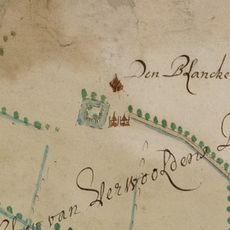 Den Blancke
van Verwoolden